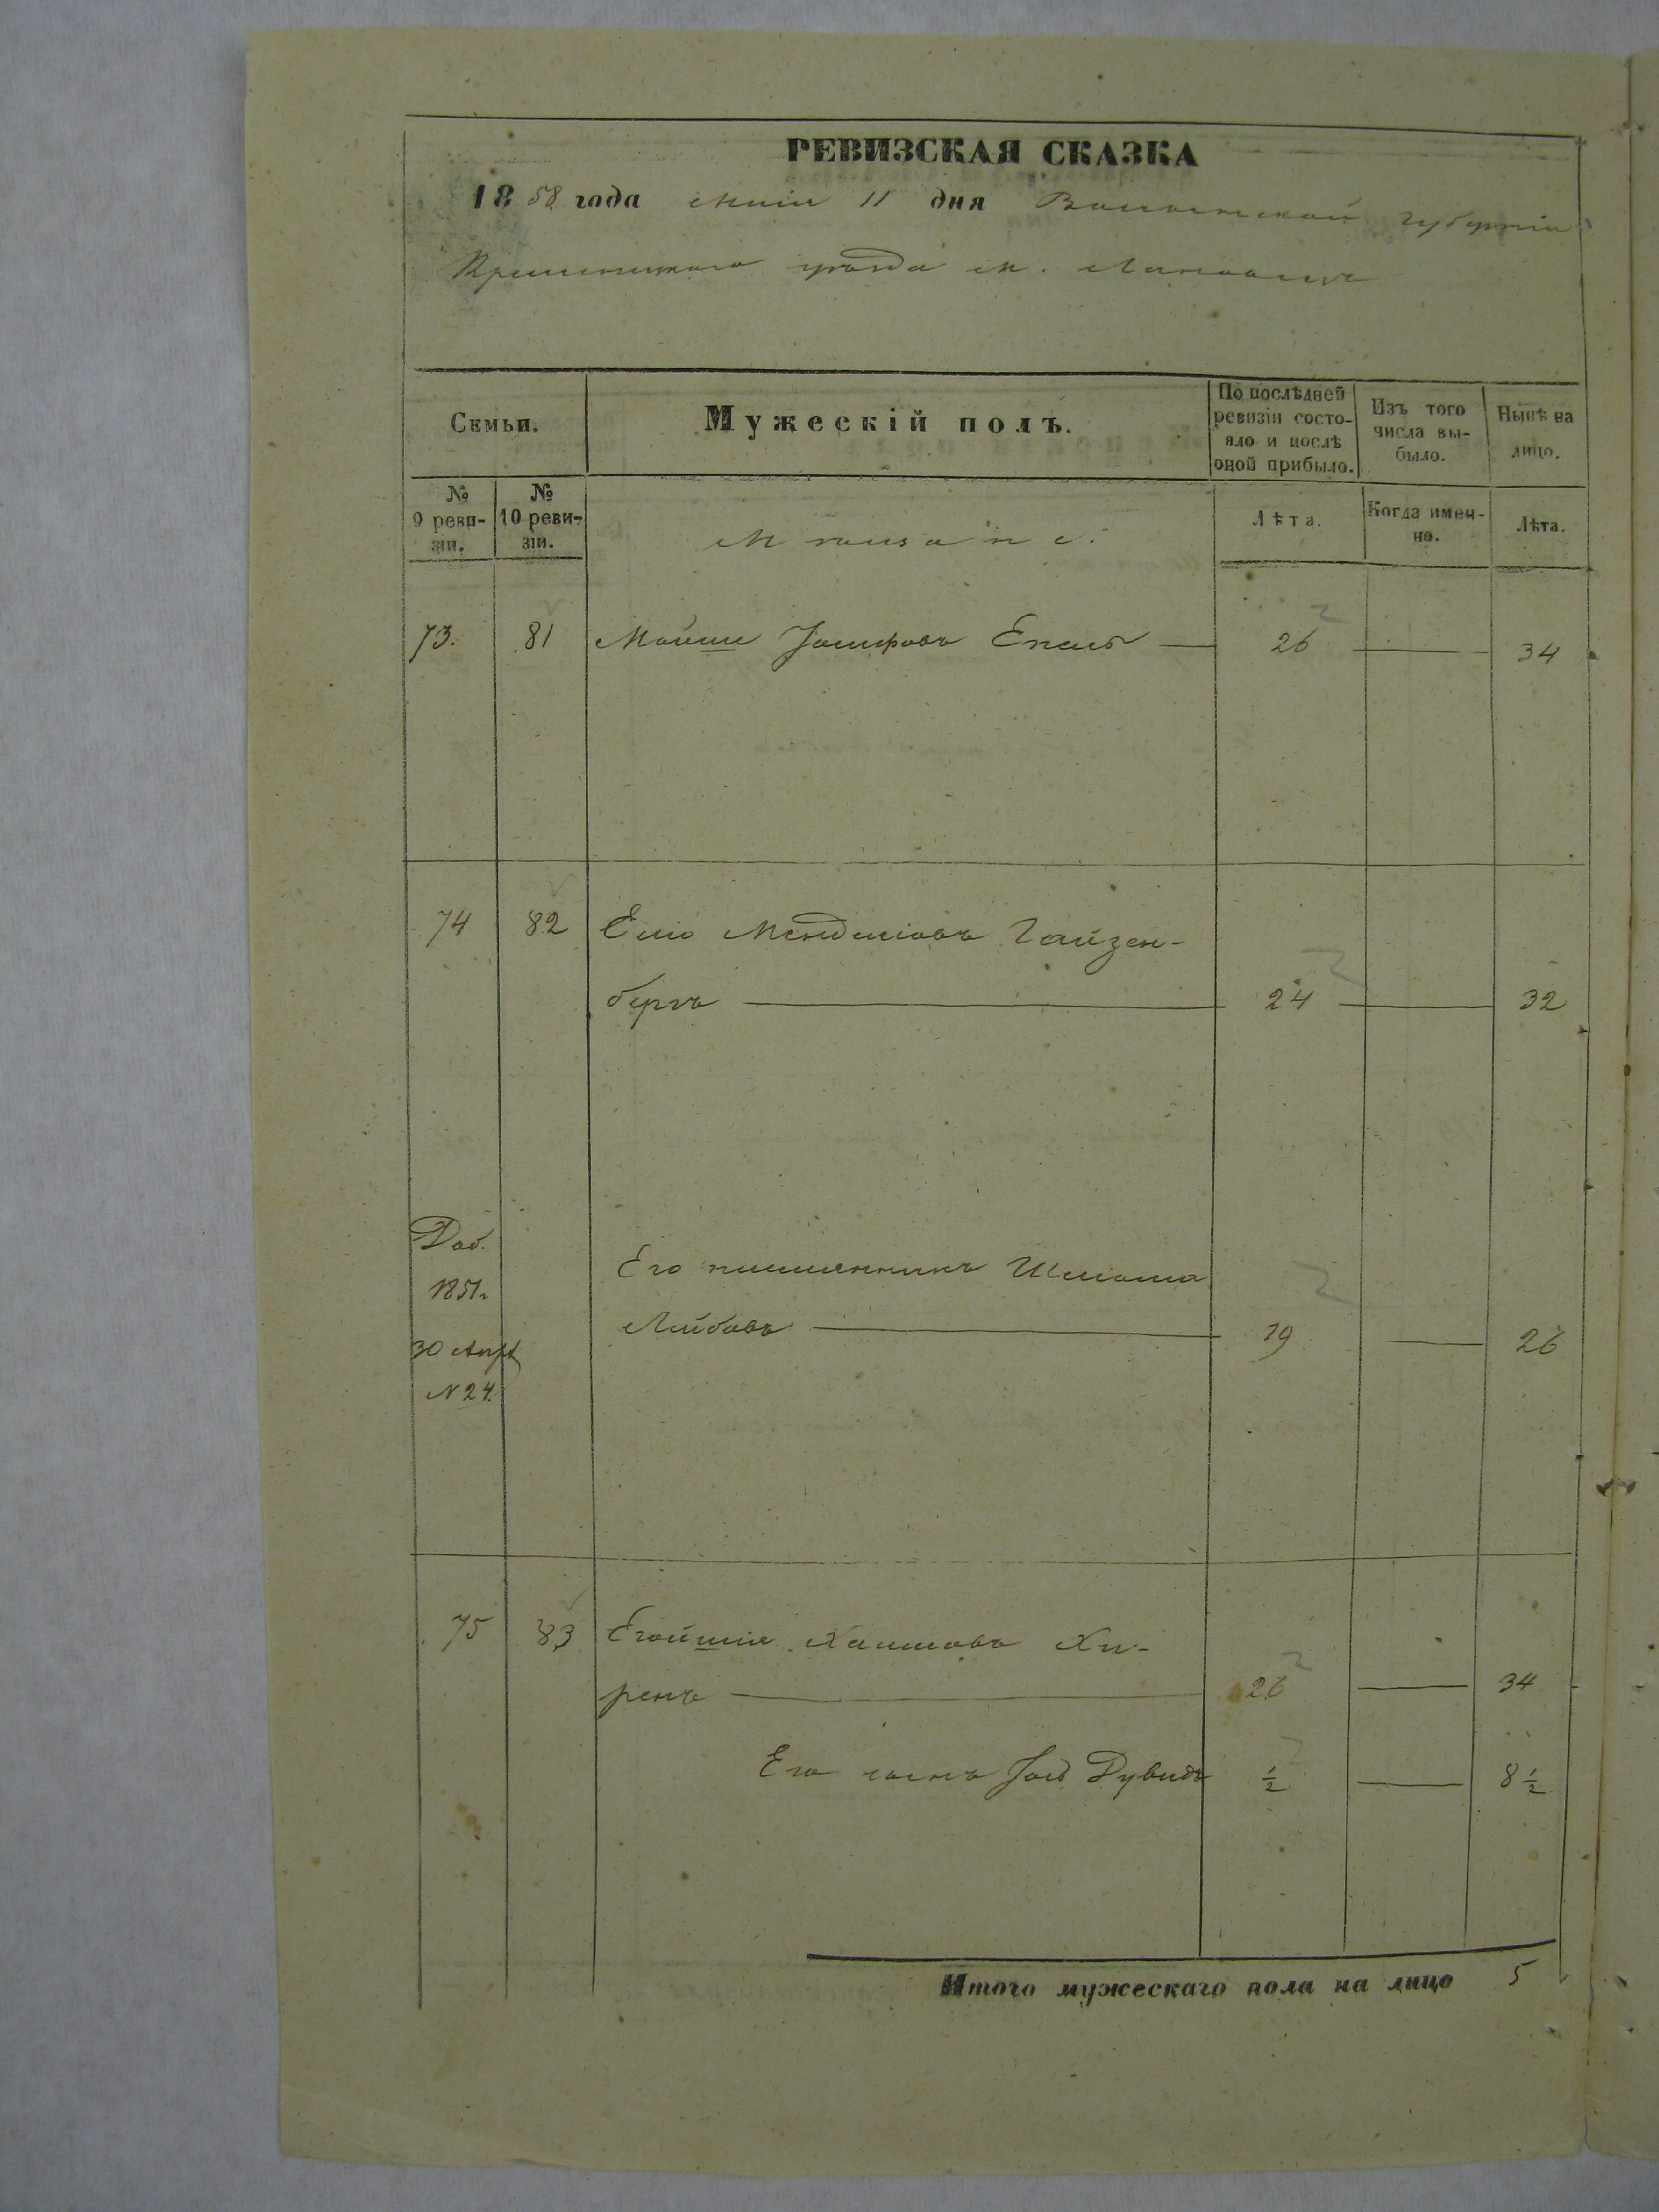 РЕВИЗСКАЯ СКАЗКА
18 58 года Маія 11 дня Волынской губерніи
Кременецкаго уѣзда м. Лановецъ
Семьи.
Мужескій полъ.
По послѣдней ревизіи состо-
яло и послѣ
оной прибыло.
Изъ того
числа вы-
было.
Нынѣ на
лицо.
№
9 реви-
зіи.
№
10 реви-
зіи.
Мѣщане.
Лѣта.
Когда имен-
но.
Лѣта.
73. 81 Мойше Іосифовъ 26 34
74 82 Елю Менделіовъ Гайзен-
бергъ 24 32
Доб.
1851г
30 Апр
N 24.
Его племянникъ Шліома
Лейбовъ 19 26
75 83 Хаимовъ Хи-
ренъ 26 34
Его сынъ Іось Дувидъ ½ 8½
Итого мужескаго пола на лицо 5